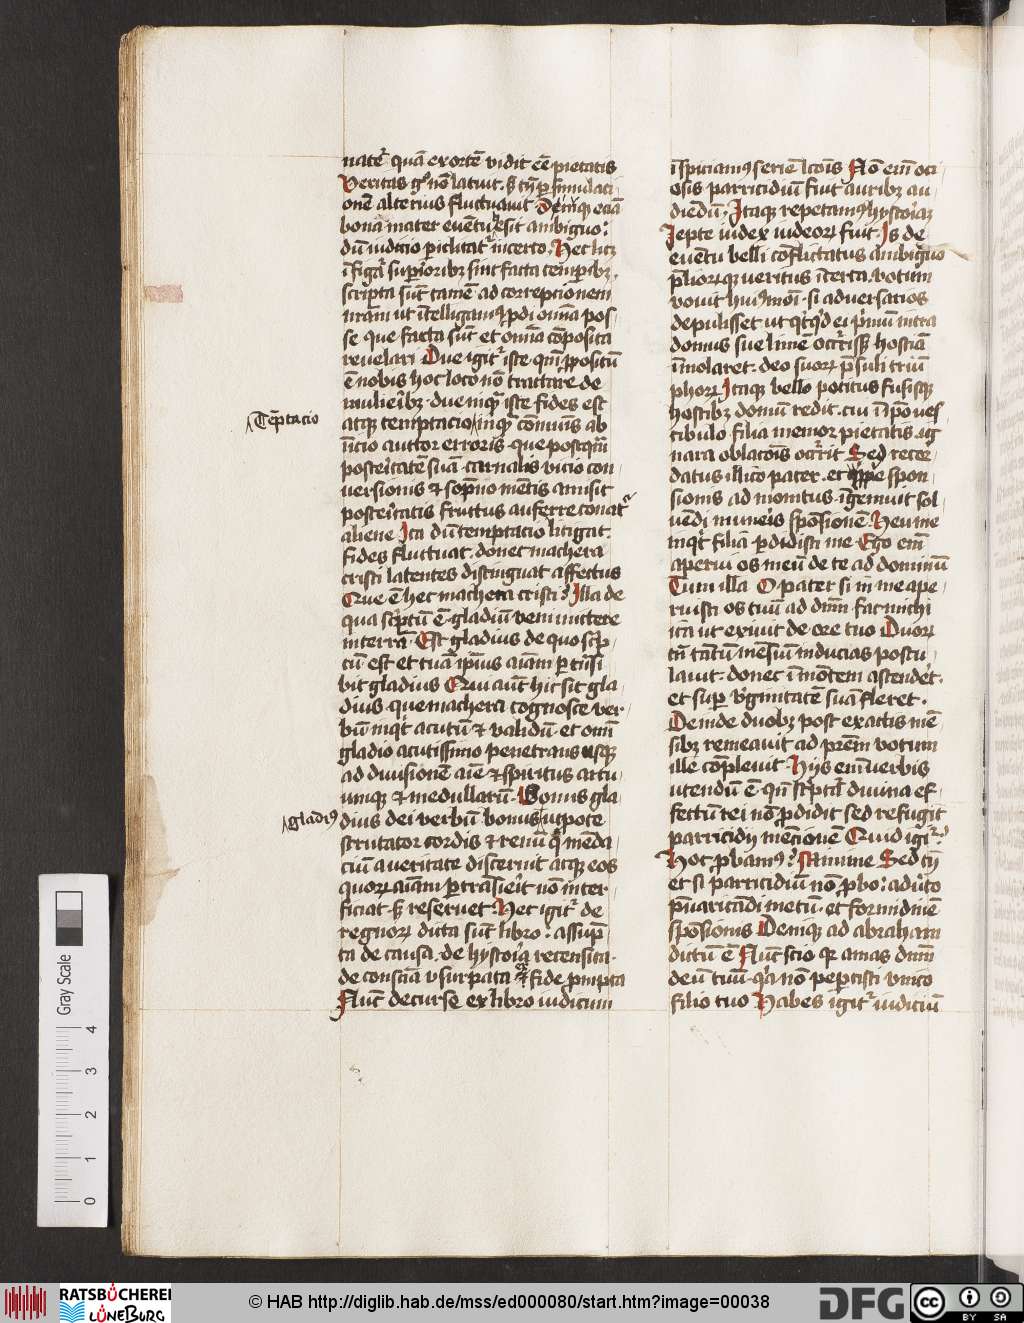 natꝰ quā exortē vidit eē pietatis
Veritas gͦ nō latuit. ſꝫ tn̄ ꝑ ſimulaci-
onē alterius fluctuauit. Deniqꝫ eciā
bona mater euentu eſit ambiguo:
dū iudicio piclitatꝰ incerto. Hec licꝫ
ī figa suꝑioribꝫ ſint facta temꝑibꝫ.
scripta sūt tamē ad correpcionem
nr̄am ut ītelligamꝰ ꝓdi omīa pos-
se que facta sūt et omīa cōposita
reuelari Due igitꝰ iste qm̄ ꝓpositū
ē nobis hoc loco nō tractare de
mulieribꝫ. due inquā iste fides est
atqꝫ temptacio inqꝫ cōmunis ab
inicio auctor erroris. que postqūā
posteritatē suā. carnalis vicio con-
versionis ⁊ sopno mentis amisit
posteritatis fructus auferre conatꝰ
aliene Ita dū temptacio litigat.
fides fluctuat. donec machera
cristi latentes distinguat affectus
Que ē hec machera cristi? Illa de
qua scriptū ē. gladiū veni mittere
in terrā. Est gladius de quo scrip-
tū est et tuā ipīus aīam ꝑtrāsi-
bit gladius Qui aūt hic sit gla-
dius. que machera cognosce ver-
bū inqt acutū ⁊ validū. et omī
gladio acutissimo penetrans usqꝫ
ad diuisionē aīe ⁊ spiritus artu-
umqꝫ ⁊ medullarū. Bonus gla-
dius dei verbū bonus utpote
scrutator cordis ⁊ renū qͥ menda-
ciū a ueritate discernit atqꝫ eos
quorꝝ aīam ꝑtrāsierit nō inter-
ficiat. ſꝫ reseruet. Hec igitꝰ de
regnorꝝ dicta sūt libro. assūp-
ta de causa. de hystoria recensita.
de consciā vsurpata ⁊ fide prompta
Nūc decurse ex libro iudicum
Tēptacio
gladiꝰ
īspiciamꝰ seriē lcōis Nō em̄ oci-
osis parricidiū fiut auribꝫ au-
diēdū. Itaqꝫ repetamꝰ hystoriā
Jepte iudex iudeorꝝ fuit. Is de
euētu belli cōflictatus ambiguo
p̄liorūqꝫ ueritus īcerta. votum
vouit huiꝰmōi. si aduersarios
depulisset ut qͥcqͥd ei pͥmū intra
domus sue limē occrrisꝫ hostiā
īmolaret. deo suorꝝ p̄suli triū-
phorꝝ Itaqꝫ bello potitus fusisqꝫ
hostibꝫ domū redit. cui ī ipo ves-
tibulo filia memor pietatis. ig-
nara oblacōis occrrit Sed recor-
datus illico pater. et spon-
sionis ad monitus. īgemuit sol-
uēdi muneris spōsionē. Heu me
inqt filia ꝑdidisti me Ego em̄
aperui os meū de te ad dominū
Tum illa O pater si in me ape-
ruisti os tuū ad dnm̄ fac michi
ita ut exiuit de ore tuo Duorꝝ
tn̄ tātū mēsiū inducias postu-
lauit. donec ī mōtem ascenderet.
et sup vͥginitatē suā fleret.
Deinde duobꝫ post exactis mē-
sibꝫ remeauit ad pr̄em votum
ille cōpleuit. Hijs em̄ verbis
utendū ē. qn̄ scͥptꝰa diuina ef-
fectū rei nō ꝓdidit sed refugit
parricidij mēcionē Quid igitꝰ?
Hoc ꝓbamꝰ? Minime Sed tn̄
et si parricidiū nō ꝓbo: aduͥto
p̄uaricādi metū. et formidinē
spōsionis Deniqꝫ ad abraham
dictū ē Nūc scio qꝛ amas dnm̄
deū tuū. qͥa nō peꝑcisti vnico
filio tuo Habes igitꝰ iudiciū
Gray Scale
4
3
2
1
0
RATSBÜCHEREI
LÜNEBURG
© HAB http://diglib.hab.de/mss/ed000080/start.htm?image=00038
DFG
cc
BY SA